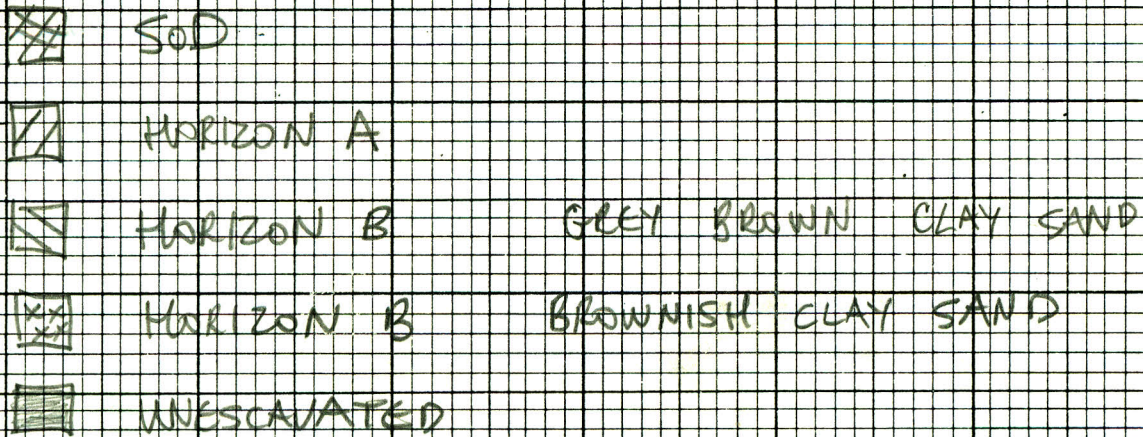 SOD
HORIZON A
HORIZON B GREY BROWN CLAY SAND
HORIZON B BROWNISH CLAY SAND
UNESCAVATED